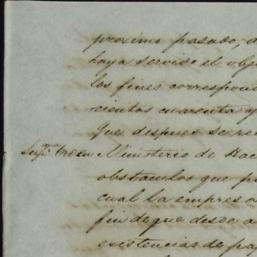 proximo pasado, a
haya servido el obje
los fines correspond
cientos cuarenta y
Que despues se re
Supr.ᵐᵃ orden Ministerio de Hac
obstaculos que p
cual la empresa
fin de que desde a
existencias de pap